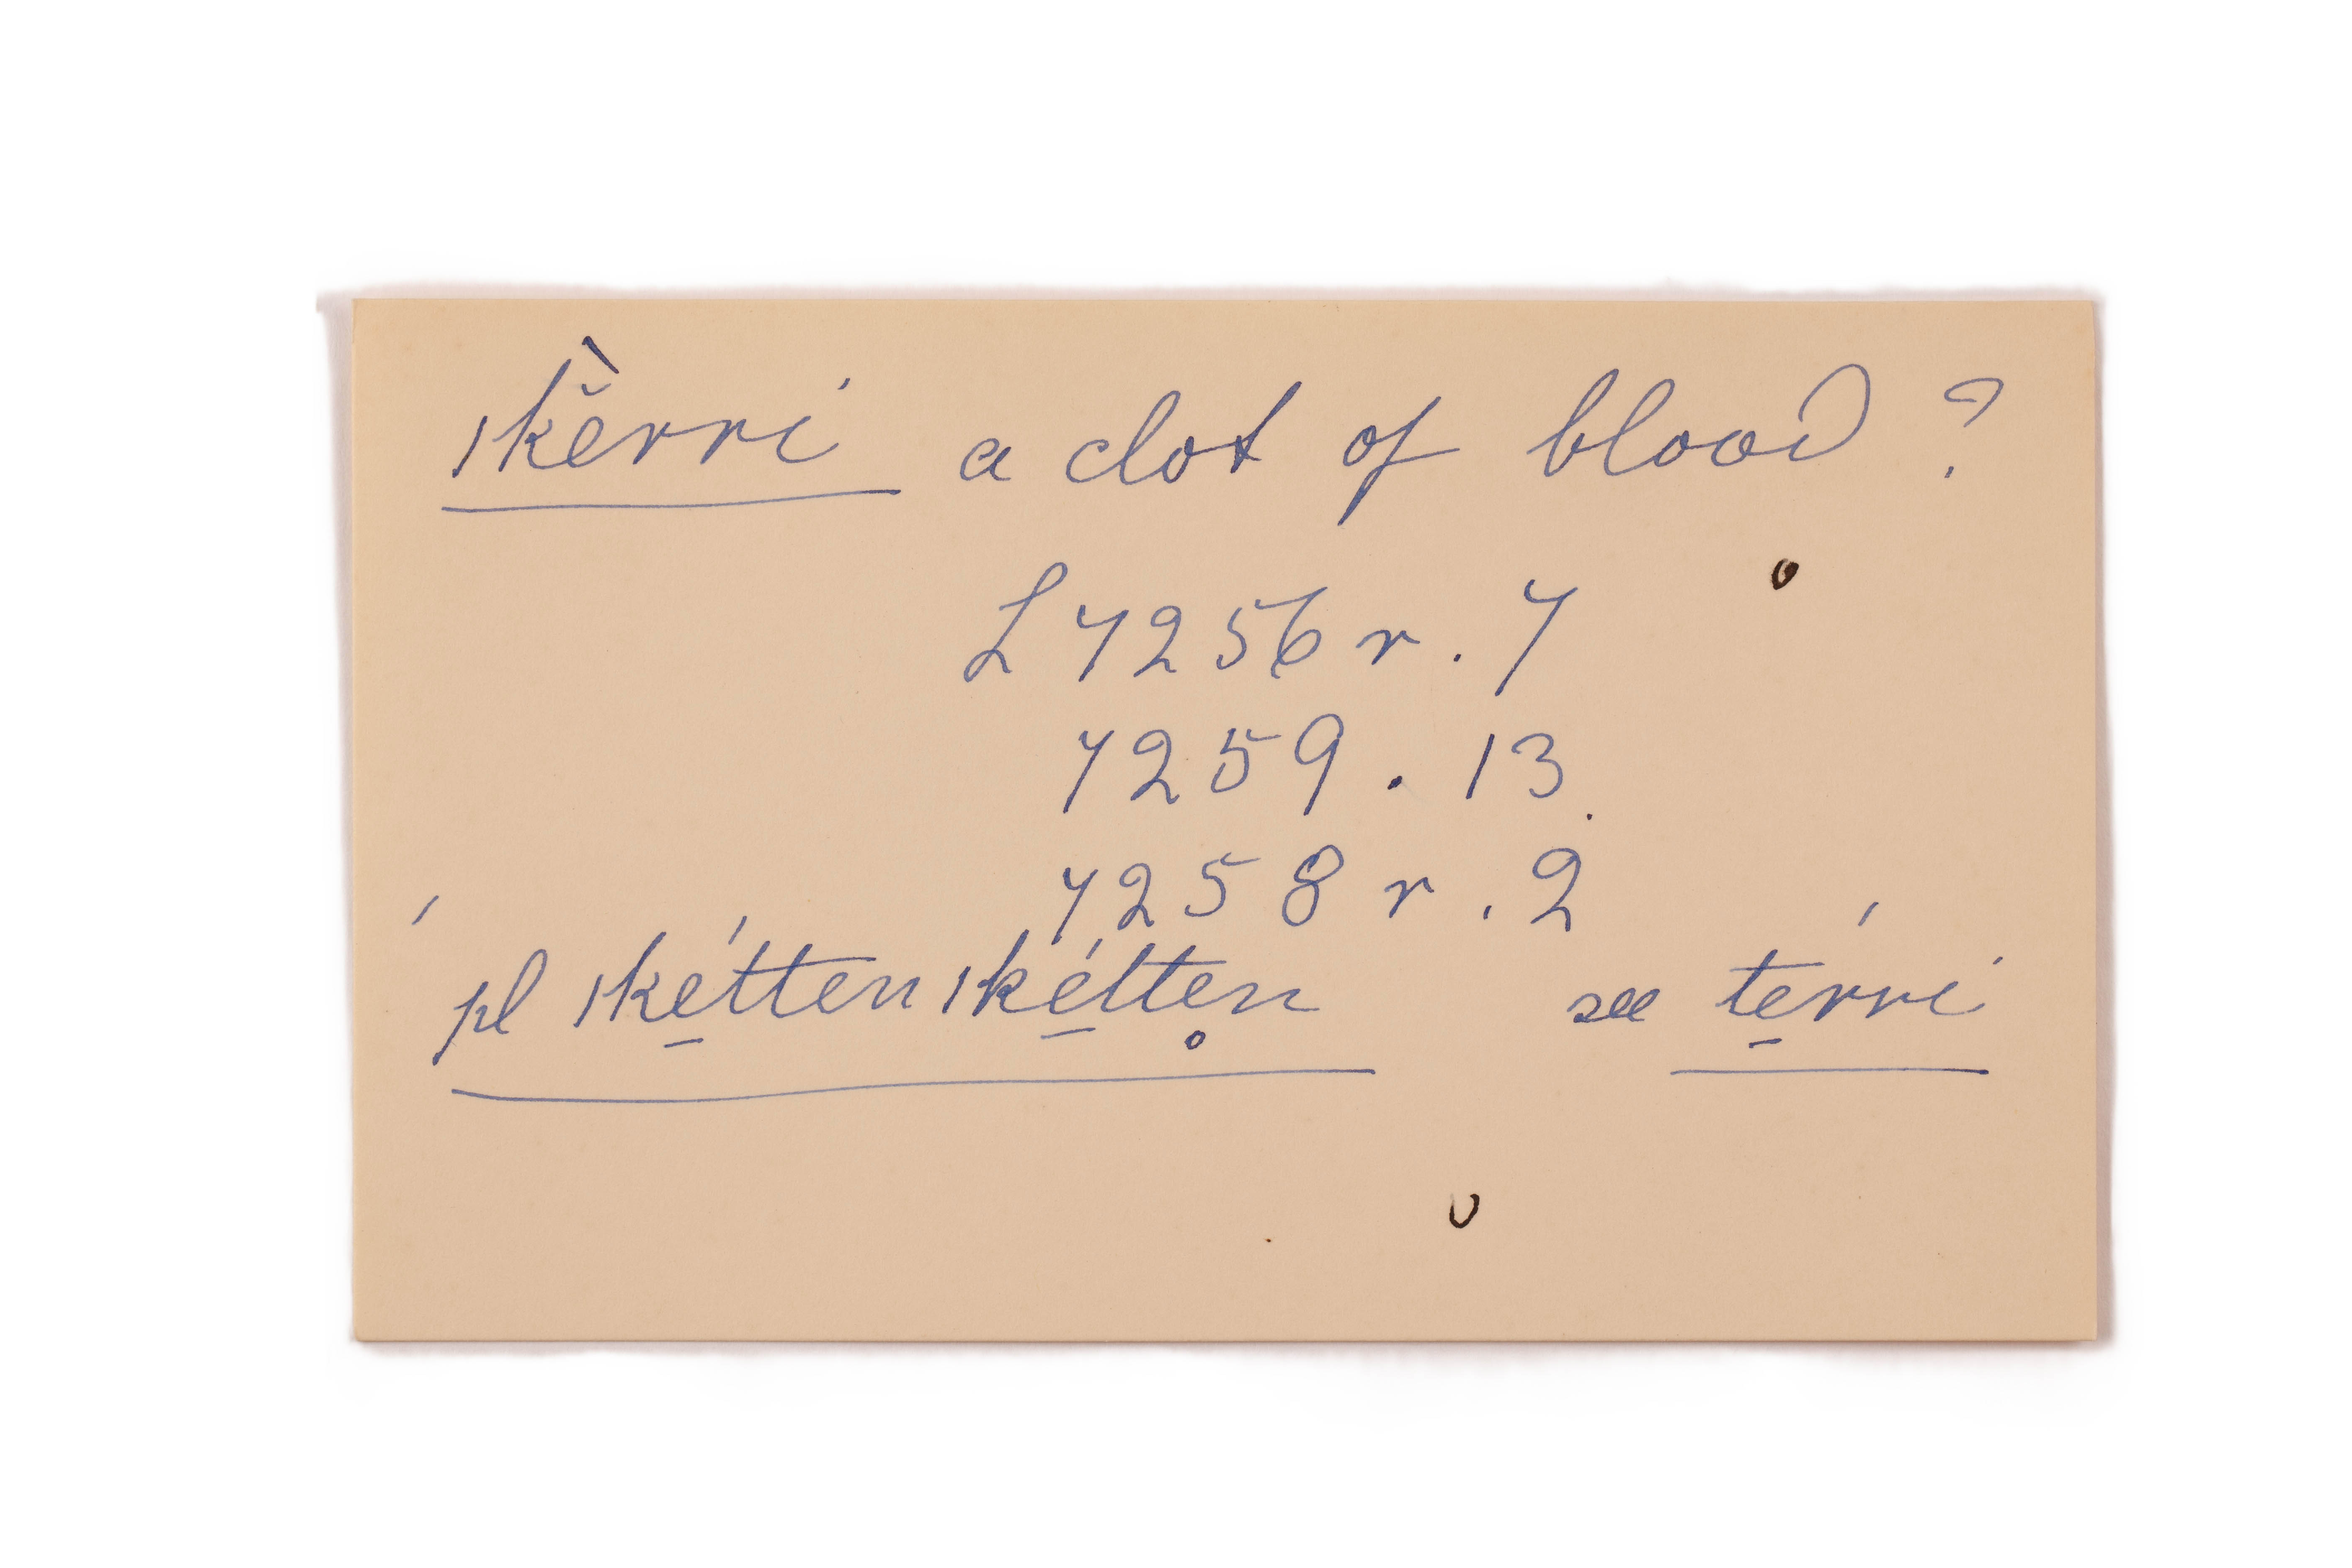 ǀkĕ̀rri a clot of blood ?
L 7256 r . 7
7259 . 13.
7258 r . 2
pl ǀké̱tten ǀké̱tte̥n see té̱rri